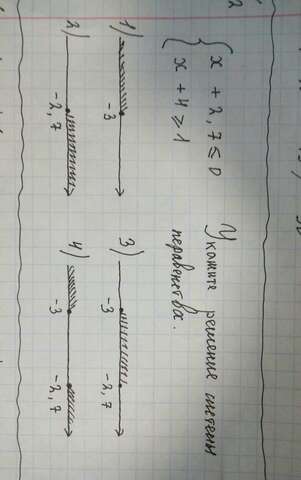 { x + 2,7 ≤ 0
x + 4 ≥ 1
Укажите решение системы
неравенства.
1) -3
2) -2,7
3) -3 -2,7
4) -3 -2,7